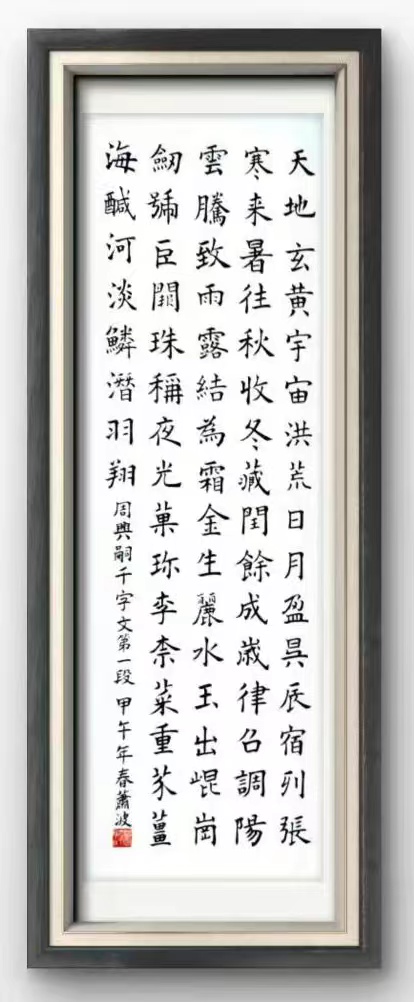 天地玄黄宇宙洪荒日月盈昃辰宿列張
寒来暑往秋收冬藏閏餘成歲律召調陽
雲騰致雨露結為霜金生麗水玉出崐崗
劒號巨闕珠稱夜光菓珎李柰菜重芥薑
海醎河淡鱗潛羽翔 周興嗣千字文第一段 甲午年春蕭波